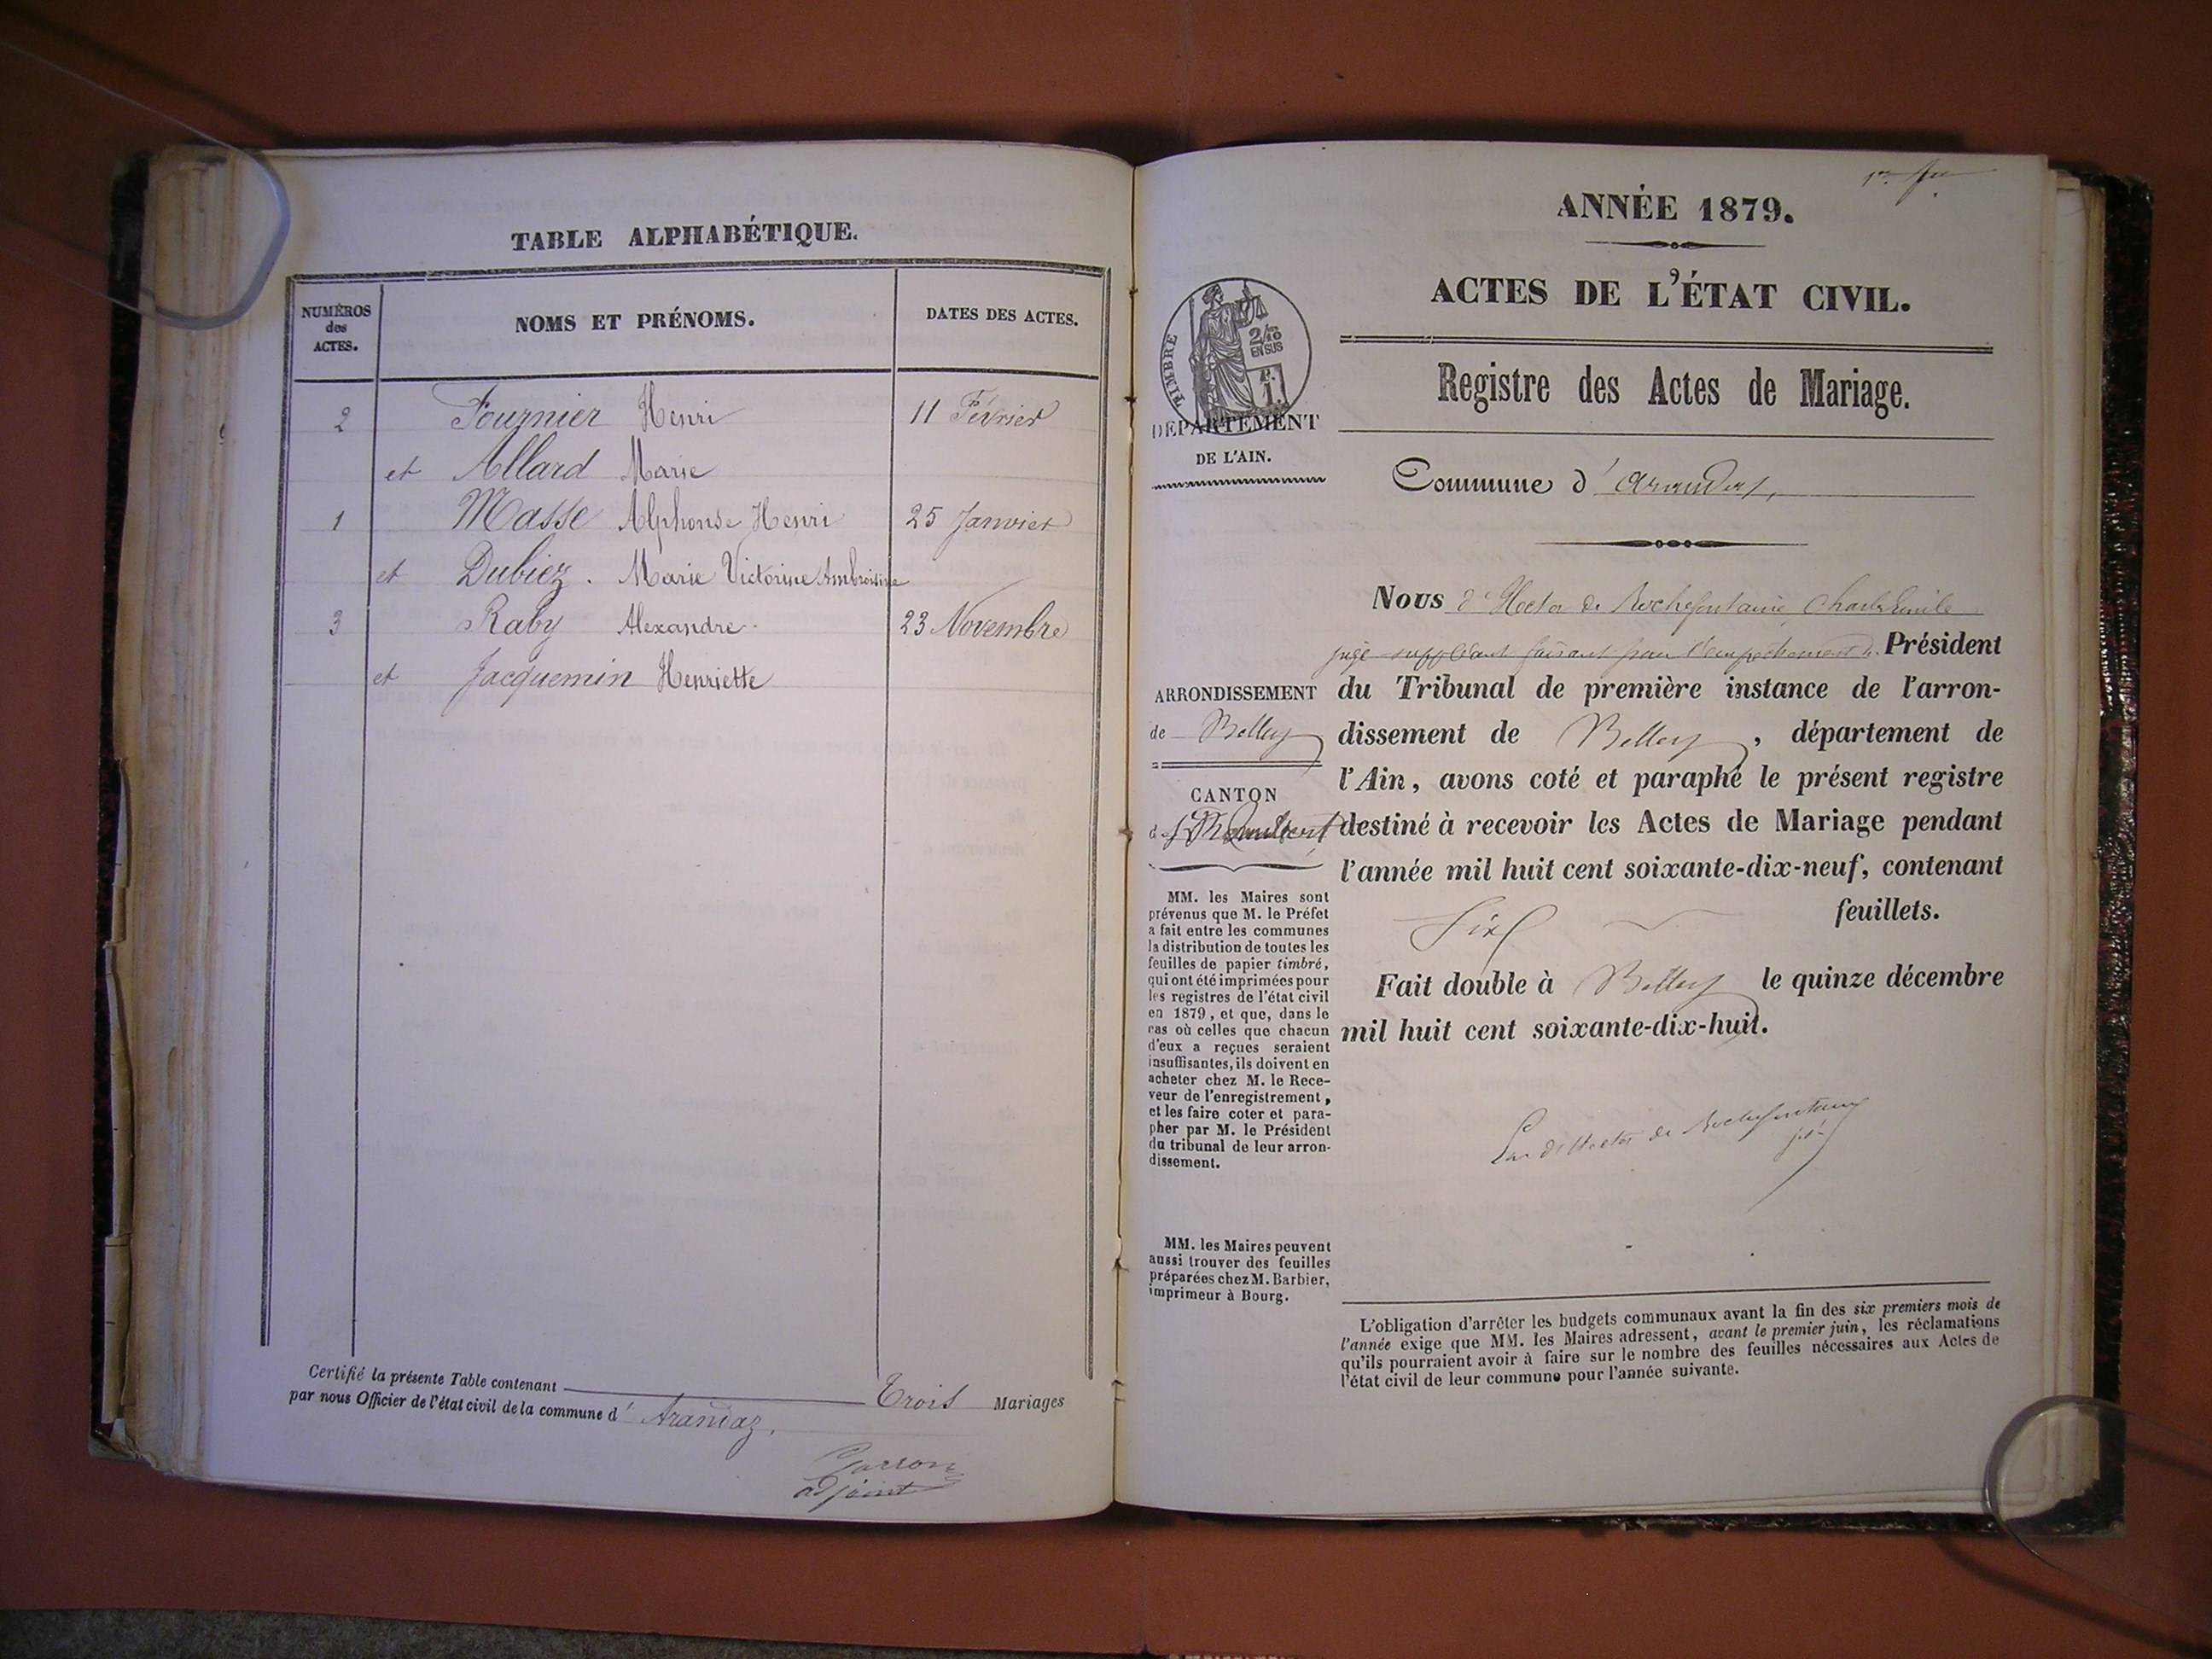 TABLE ALPHABÉTIQUE.
NUMÉROS
des
ACTES.
NOMS ET PRÉNOMS.
DATES DES ACTES.
2 Fournier Henri 11 Février
et Allard Marie
1 Masse Alphonse Henri 25 Janvier
et Dubiez. Marie Victorine Ambroisine
3 Raby Alexandre. 23 Novembre
et Jacquemin Henriette
Certifié la présente Table contenant Trois Mariages
par nous Officier de l'état civil de la commune d' Arandaz.
adjoint
ANNÉE 1879.
ACTES DE L'ÉTAT CIVIL.
Registre des Actes de Mariage.
TIMBRE
2/10
EN SUS
DÉPARTEMENT
DE L'AIN.
Commune d' Arandas,
Nous d'Hector de Rochefontaine, Charles Emile
juge suppléant faisant pour l'empêchement de Président
du Tribunal de première instance de l'arron-
dissement de Belley, département de
l'Ain, avons coté et paraphé le présent registre
destiné à recevoir les Actes de Mariage pendant
l'année mil huit cent soixante-dix-neuf, contenant
Six feuillets.
Fait double à Belley le quinze décembre
mil huit cent soixante-dix-huit.
d'Hector de Rochefontaine
ARRONDISSEMENT
de Belley
CANTON
de St Rambert
MM. les Maires sont
prévenus que M. le Préfet
a fait entre les communes
la distribution de toutes les
feuilles de papier timbré,
qui ont été imprimées pour
les registres de l'état civil
en 1879, et que, dans le
cas où celles que chacun
d'eux a reçues seraient
insuffisantes, ils doivent en
acheter chez M. le Rece-
veur de l'enregistrement,
et les faire coter et para-
pher par M. le Président
du tribunal de leur arron-
dissement.
MM. les Maires peuvent
aussi trouver des feuilles
préparées chez M. Barbier,
imprimeur à Bourg.
L'obligation d'arrêter les budgets communaux avant la fin des six premiers mois de
l'année exige que MM. les Maires adressent, avant le premier juin, les réclamations
qu'ils pourraient avoir à faire sur le nombre des feuilles nécessaires aux Actes de
l'état civil de leur commune pour l'année suivante.